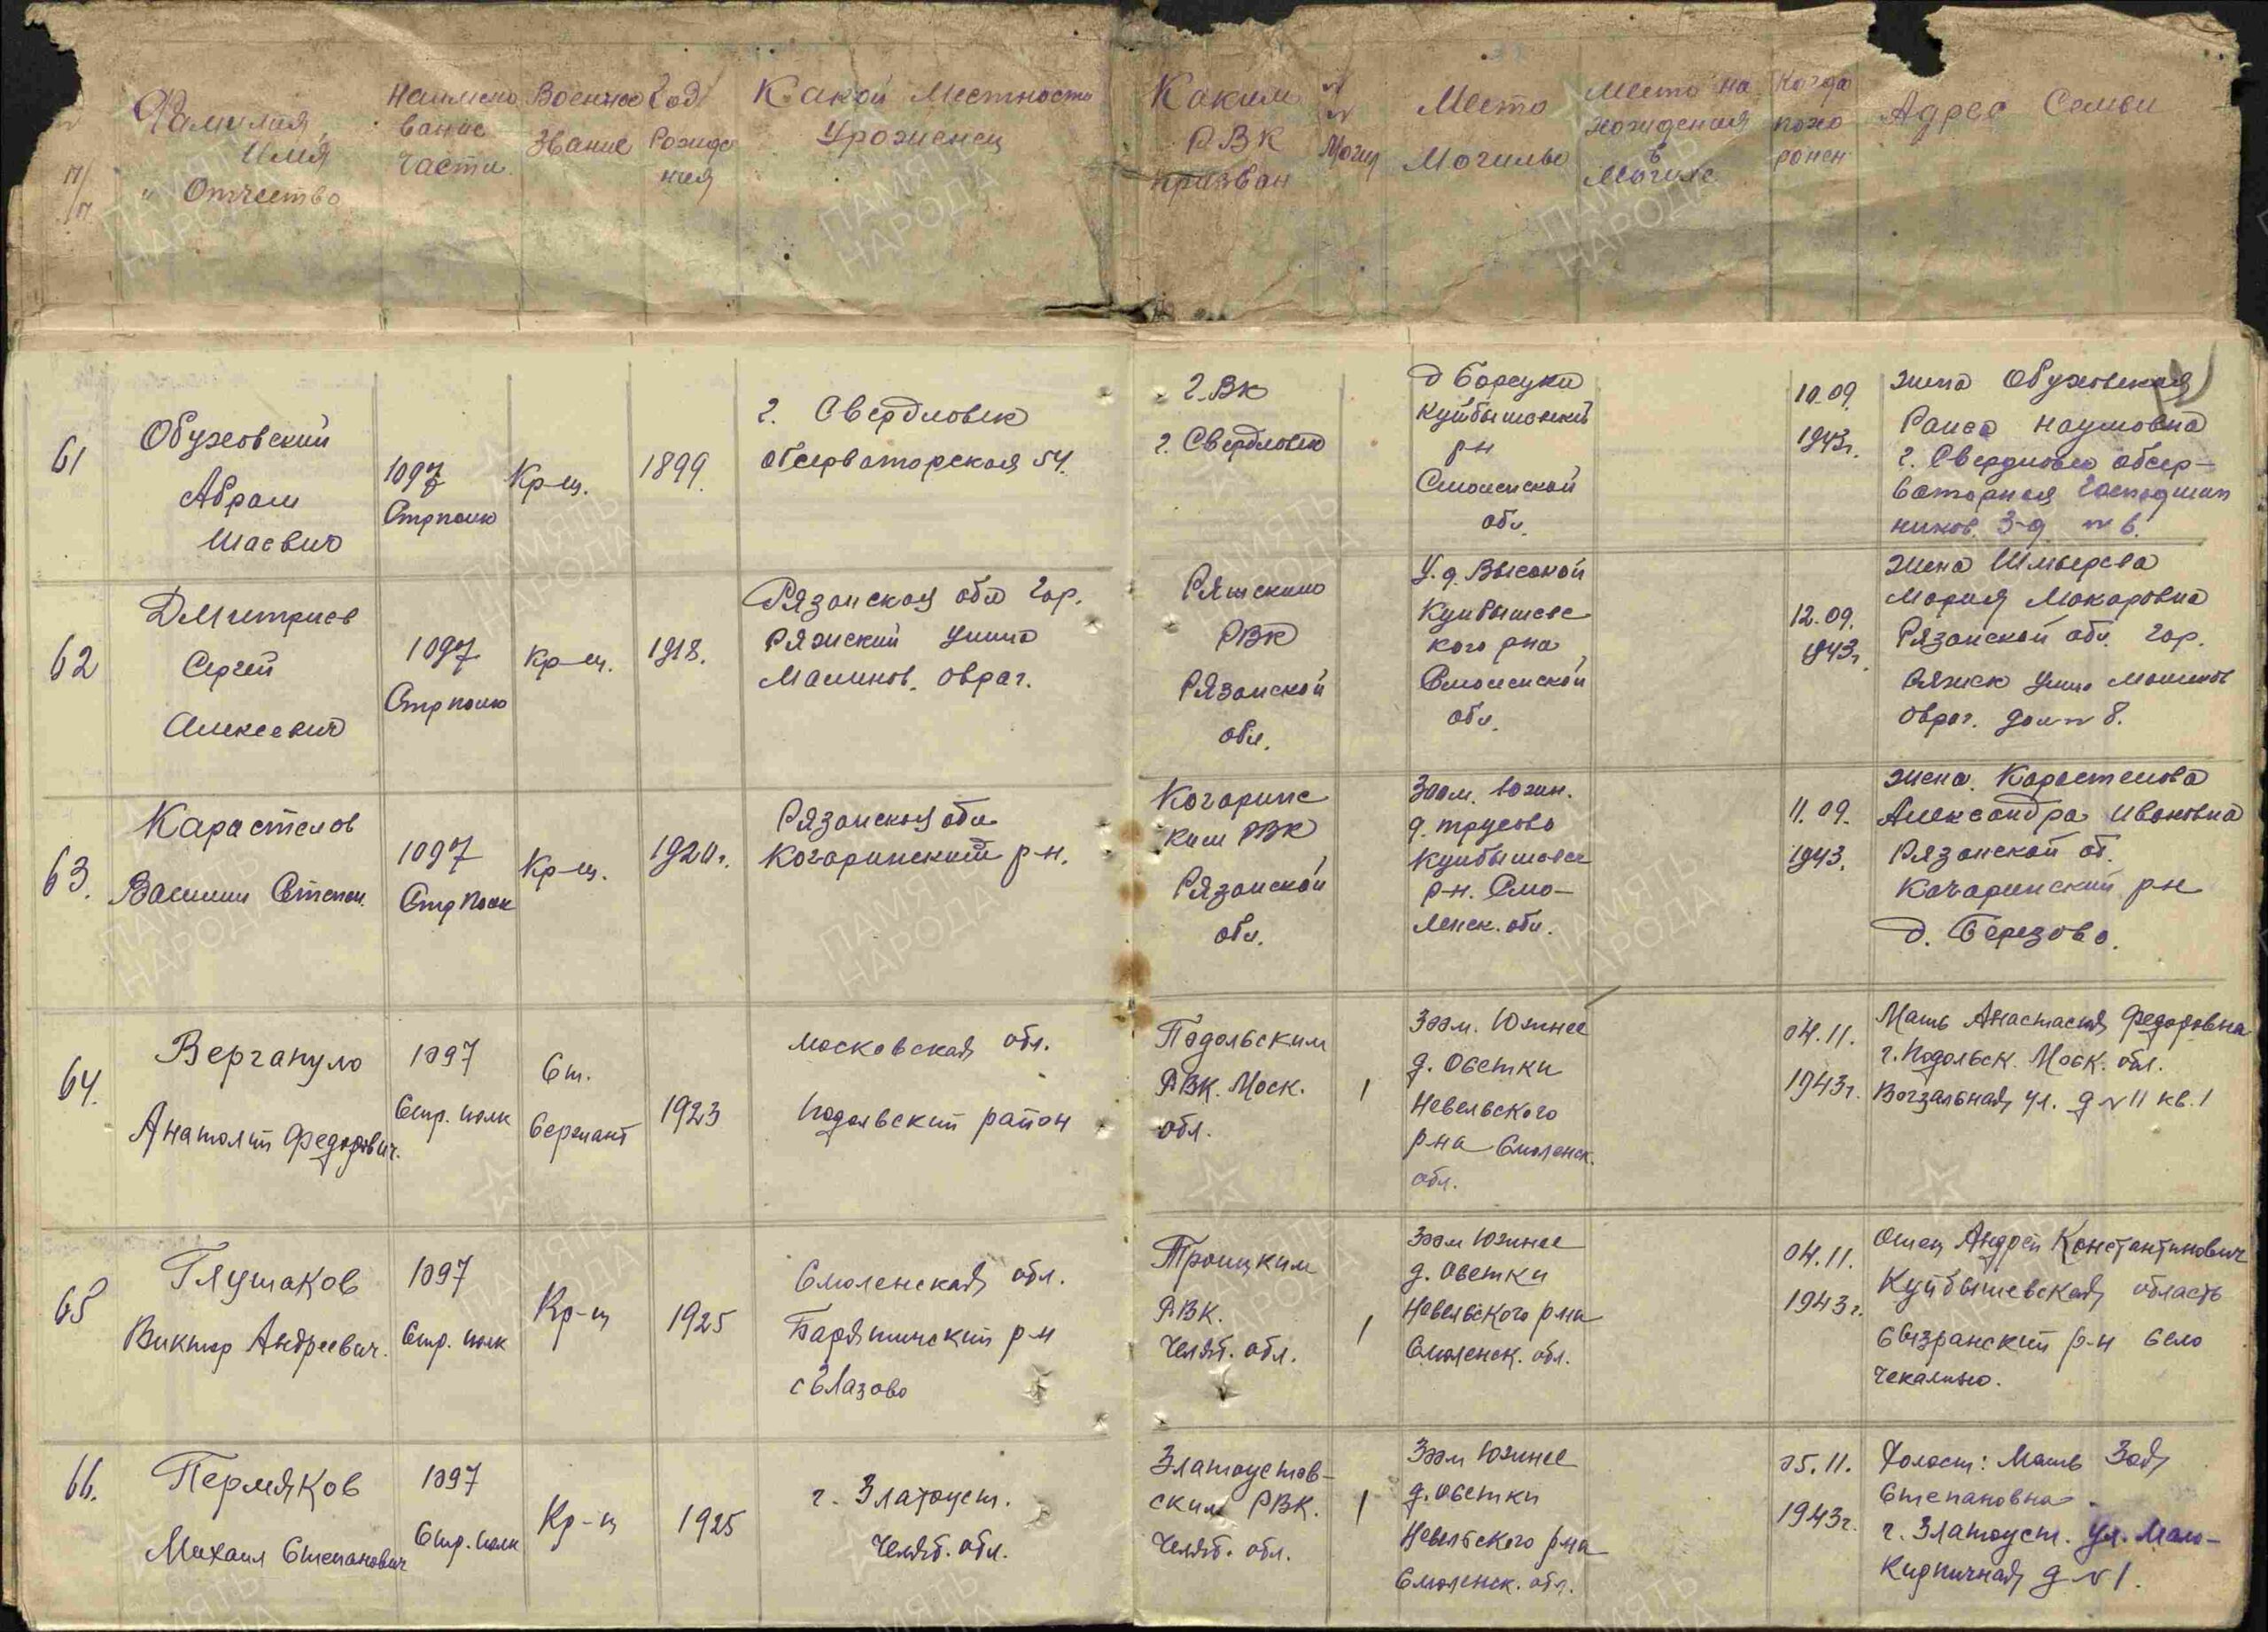 Фамилия,
Имя
" Отчество
п/п
Наимено
вание
части.
Военное
Звание
Год
Рожде
ния
Какой Местности
Уроженец
Каким
РВК
призван
Могил
Место
Могилы
Место на
хождения
в
Могиле
Когда
похо
ронен
Адрес Семьи
61
Обуховский
Абрам
Шаевич
1097
Стр полк
Кр-ец.
1899.
г. Свердловск
обсерваторская 54.
Г.ВК
г. Свердловск
д Барсуки
Куйбышевский
рн
Смоленской
обл.
10.09.
1943г.
жена Обуховская
Раиса Наумовна
г. Свердловск обсер-
3-д № 6.
62
Дмитриев
Сергей
Алексеевич
1097
Стр полк
Кр-ец.
1918.
Рязанская обл гор.
Ряжский улица
Малинов. овраг.
Ряжским
РВК
Рязанской
обл.
У. д. Высокой
Куйбышевс
кого рна
Смоленской
обл.
12.09.
1943г.
жена Шмырева
Мария Макаровна
Рязанской обл. гор.
Ряжск улица Малинов
овраг. дом № 8.
63.
Карастелов
Василий Степан.
1097
Стр Полк
Кр-ец.
1920г.
Рязанская обл
Кагаринский р-н.
Когаринс
ким РВК
Рязанской
обл.
300м. южн.
д. Трусово
Куйбышевск
р-н. Смо-
ленск. обл.
11.09.
1943.
жена. Карастелова
Александра Ивановна
Рязанской об.
Качаринский р-н
д. Березово.
64.
Вергануло
Анатолий Федорович.
1097
Стр. полк
Ст.
Сержант
1923
Московская обл.
Подольский район
Подольским
РВК. Моск.
обл.
1
300м. Южнее
д. Овстки
Невельского
р-на Смоленск.
обл.
04.11.
1943г.
Мать Анастасия Федоровна
г. Подольск. Моск. обл.
Вогзальная ул. д № 11 кв. 1
65
Глушаков
Виктор Андреевич.
1097
Стр. полк
Кр-ц
1925
Смоленская обл.
Барятинский р-н
Троицким
РВК.
Челяб. обл.
1
300м Южнее
д. Овстки
Невельского р-на
Смоленск. обл.
04.11.
1943г.
Отец Андрей Константинович
Куйбышевская область
Сызранский р-н село
Чекалино.
66.
Пермяков
Михаил Степанович
1097
Стр. полк
Кр-ц
1925
г. Златоуст.
Челяб. обл.
Златоустов-
ским РВК.
Челяб. обл.
1
300м Южнее
д. Овстки
Невельского р-на
Смоленск. обл.
05.11.
1943г.
Холост: Мать Зоя
Степановна.
г. Златоуст. ул. Мало-
Кирпичная д № 1.
ПАМЯТЬ
НАРОДА